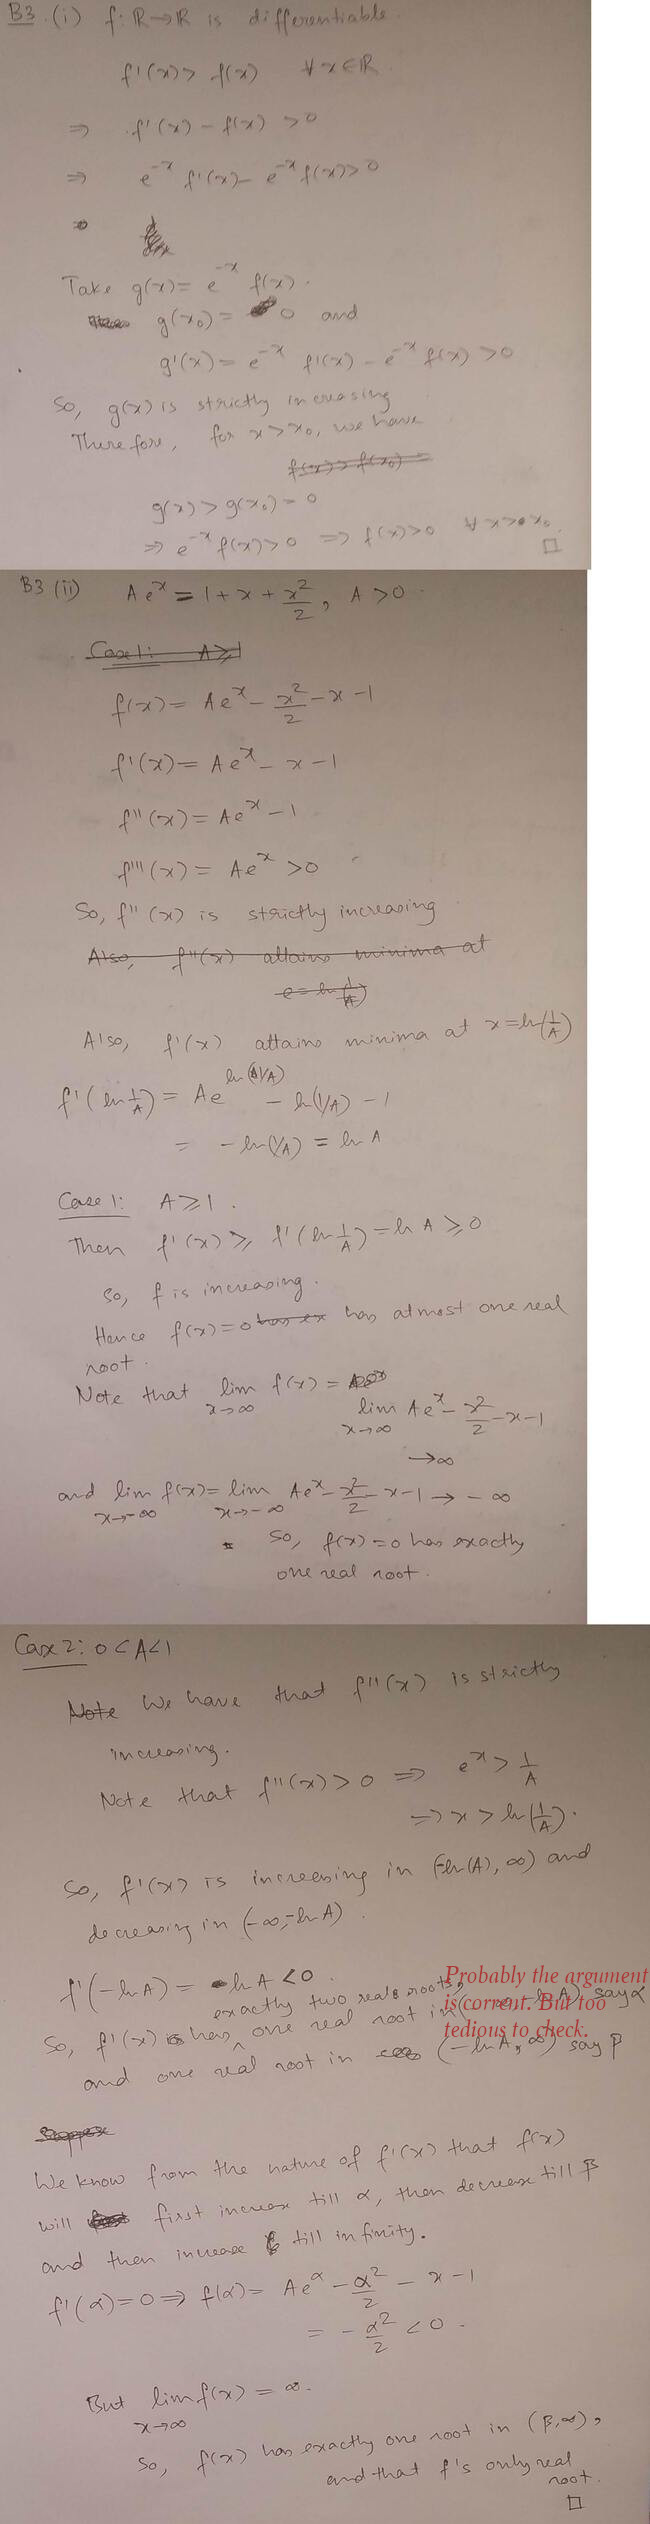 B3. (i) f: ℝ→ℝ is differentiable.
f'(x) > f(x) ∀ x∈ℝ.
⇒ f'(x) - f(x) > 0
⇒ e^{-x} f'(x) - e^{-x} f(x) > 0
⇒
Take g(x) = e^{-x} f(x).
g(x₀) = 0 and
g'(x) = e^{-x} f'(x) - e^{-x} f(x) > 0
So, g(x) is strictly increasing
Therefore, for x > x₀, we have
f(x) > f(x₀) =
g(x) > g(x₀) = 0
⇒ e^{-x} f(x) > 0 ⇒ f(x) > 0 ∀ x > x₀.
□
B3 (ii) Ae^x = 1 + x + x²/2, A > 0.
Case 1: A ≥ 1
f(x) = Ae^x - x²/2 - x - 1
f'(x) = Ae^x - x - 1
f''(x) = Ae^x - 1
f'''(x) = Ae^x > 0
So, f''(x) is strictly increasing
Also, f''(x) attains minima at
e = ln(1/A)
Also, f'(x) attains minima at x = ln(1/A)
f'(ln 1/A) = Ae^{ln(1/A)} - ln(1/A) - 1
= - ln(1/A) = ln A
Case 1: A ≥ 1.
Then f'(x) ≥ f'(ln 1/A) = ln A ≥ 0
So, f is increasing.
Hence f(x) = 0 has ex has atmost one real
root.
Note that lim_{x→∞} f(x) = Ae^x
lim_{x→∞} Ae^x - x²/2 - x - 1
→ ∞
and lim_{x→-∞} f(x) = lim_{x→-∞} Ae^x - x²/2 - x - 1 → - ∞
So, f(x) = 0 has exactly
one real root.
Case 2: 0 < A < 1
Note We have that f''(x) is strictly
increasing.
Note that f''(x) > 0 ⇒ e^x > 1/A
⇒ x > ln(1/A).
So, f'(x) is increasing in (-ln(A), ∞) and
decreasing in (-∞, -ln A).
f'(-ln A) = ln A < 0.
Probably the argument
is corrent. But too
tedious to check.
exactly two real roots,
So, f'(x) has one real root in (-∞, -ln A) say α
and one real root in (-ln A, ∞) say β
Suppose
We know from the nature of f'(x) that f(x)
will first increase till α, then decrease till β
and then increase till infinity.
f'(α) = 0 ⇒ f(α) = Ae^α - α²/2 - x - 1
= - α²/2 < 0.
But lim_{x→∞} f(x) = ∞.
So, f(x) has exactly one root in (β, ∞),
and that f's only real
root.
□